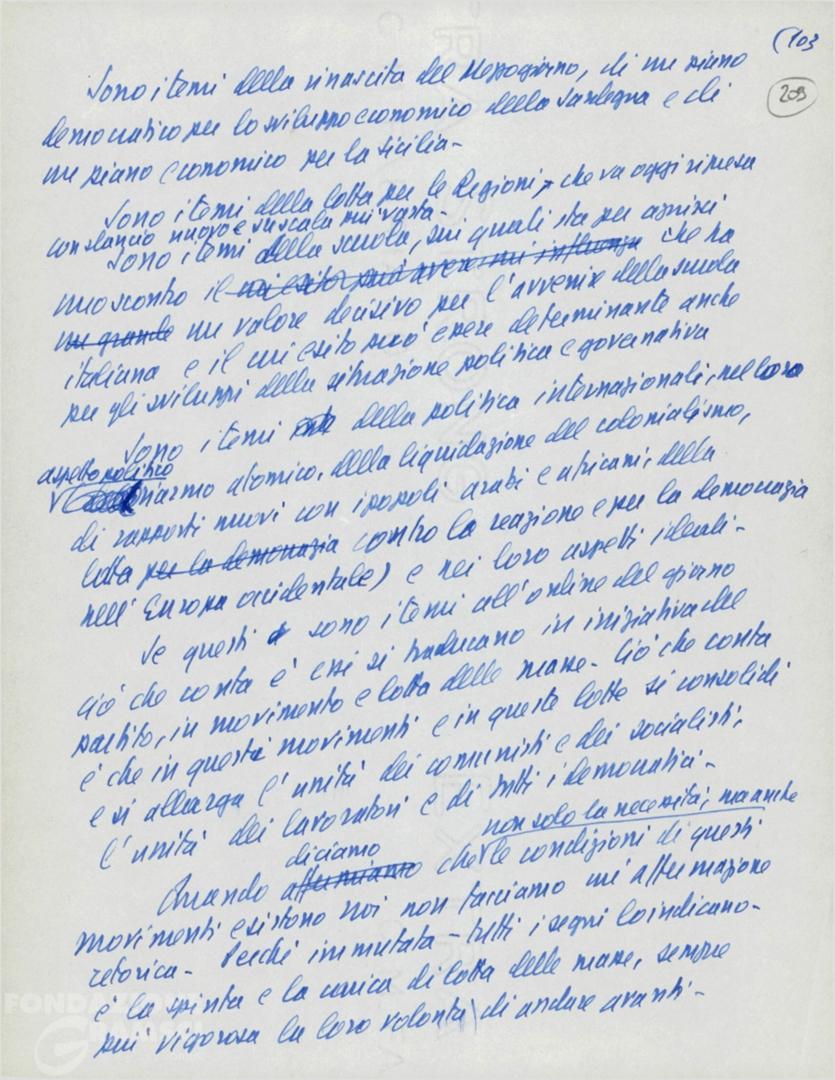 (103
209
Sono i temi della rinascita del Mezzogiorno, di un piano
democratico per lo sviluppo economico della Sardegna e di
un piano economico per la Sicilia-
Sono i temi della lotta per le Regioni, che va oggi ripresa
con slancio nuovo e su scala più vasta-
Sono i temi della scuola, sui quali sta per aprirsi
uno scontro il che ha
un grande un valore decisivo per l'avvenire della scuola
italiana e il cui esito può essere determinante anche
per gli sviluppi della situazione politica e governativa
Sono i temi della politica internazionali, nel loro
aspetto politico
riarmo atomico, della liquidazione del colonialismo,
di rapporti nuovi con i popoli arabi e africani, della
lotta per la democrazia contro la reazione e per la democrazia
nell'Europa occidentale) e nei loro aspetti ideali-
Se questi sono i temi all'ordine del giorno
ciò che conta è essi si traducano in iniziativa del
partito, in movimento e lotta delle masse- Ciò che conta
è che in questi movimenti e in queste lotte si consolidi
e si allarga l'unità dei comunisti e dei socialisti,
l'unità dei lavoratori e di tutti i democratici-
non solo la necessità, ma anche
diciamo
Quando affermiamo che le condizioni di questi
movimenti esistono noi non facciamo un'affermazione
retorica- Perché immutata - tutti i segni lo indicano-
è la spinta e la carica di lotta delle masse, sempre
più vigorosa la loro volontà di andare avanti-
FONDAZIONE
GRAMSCI